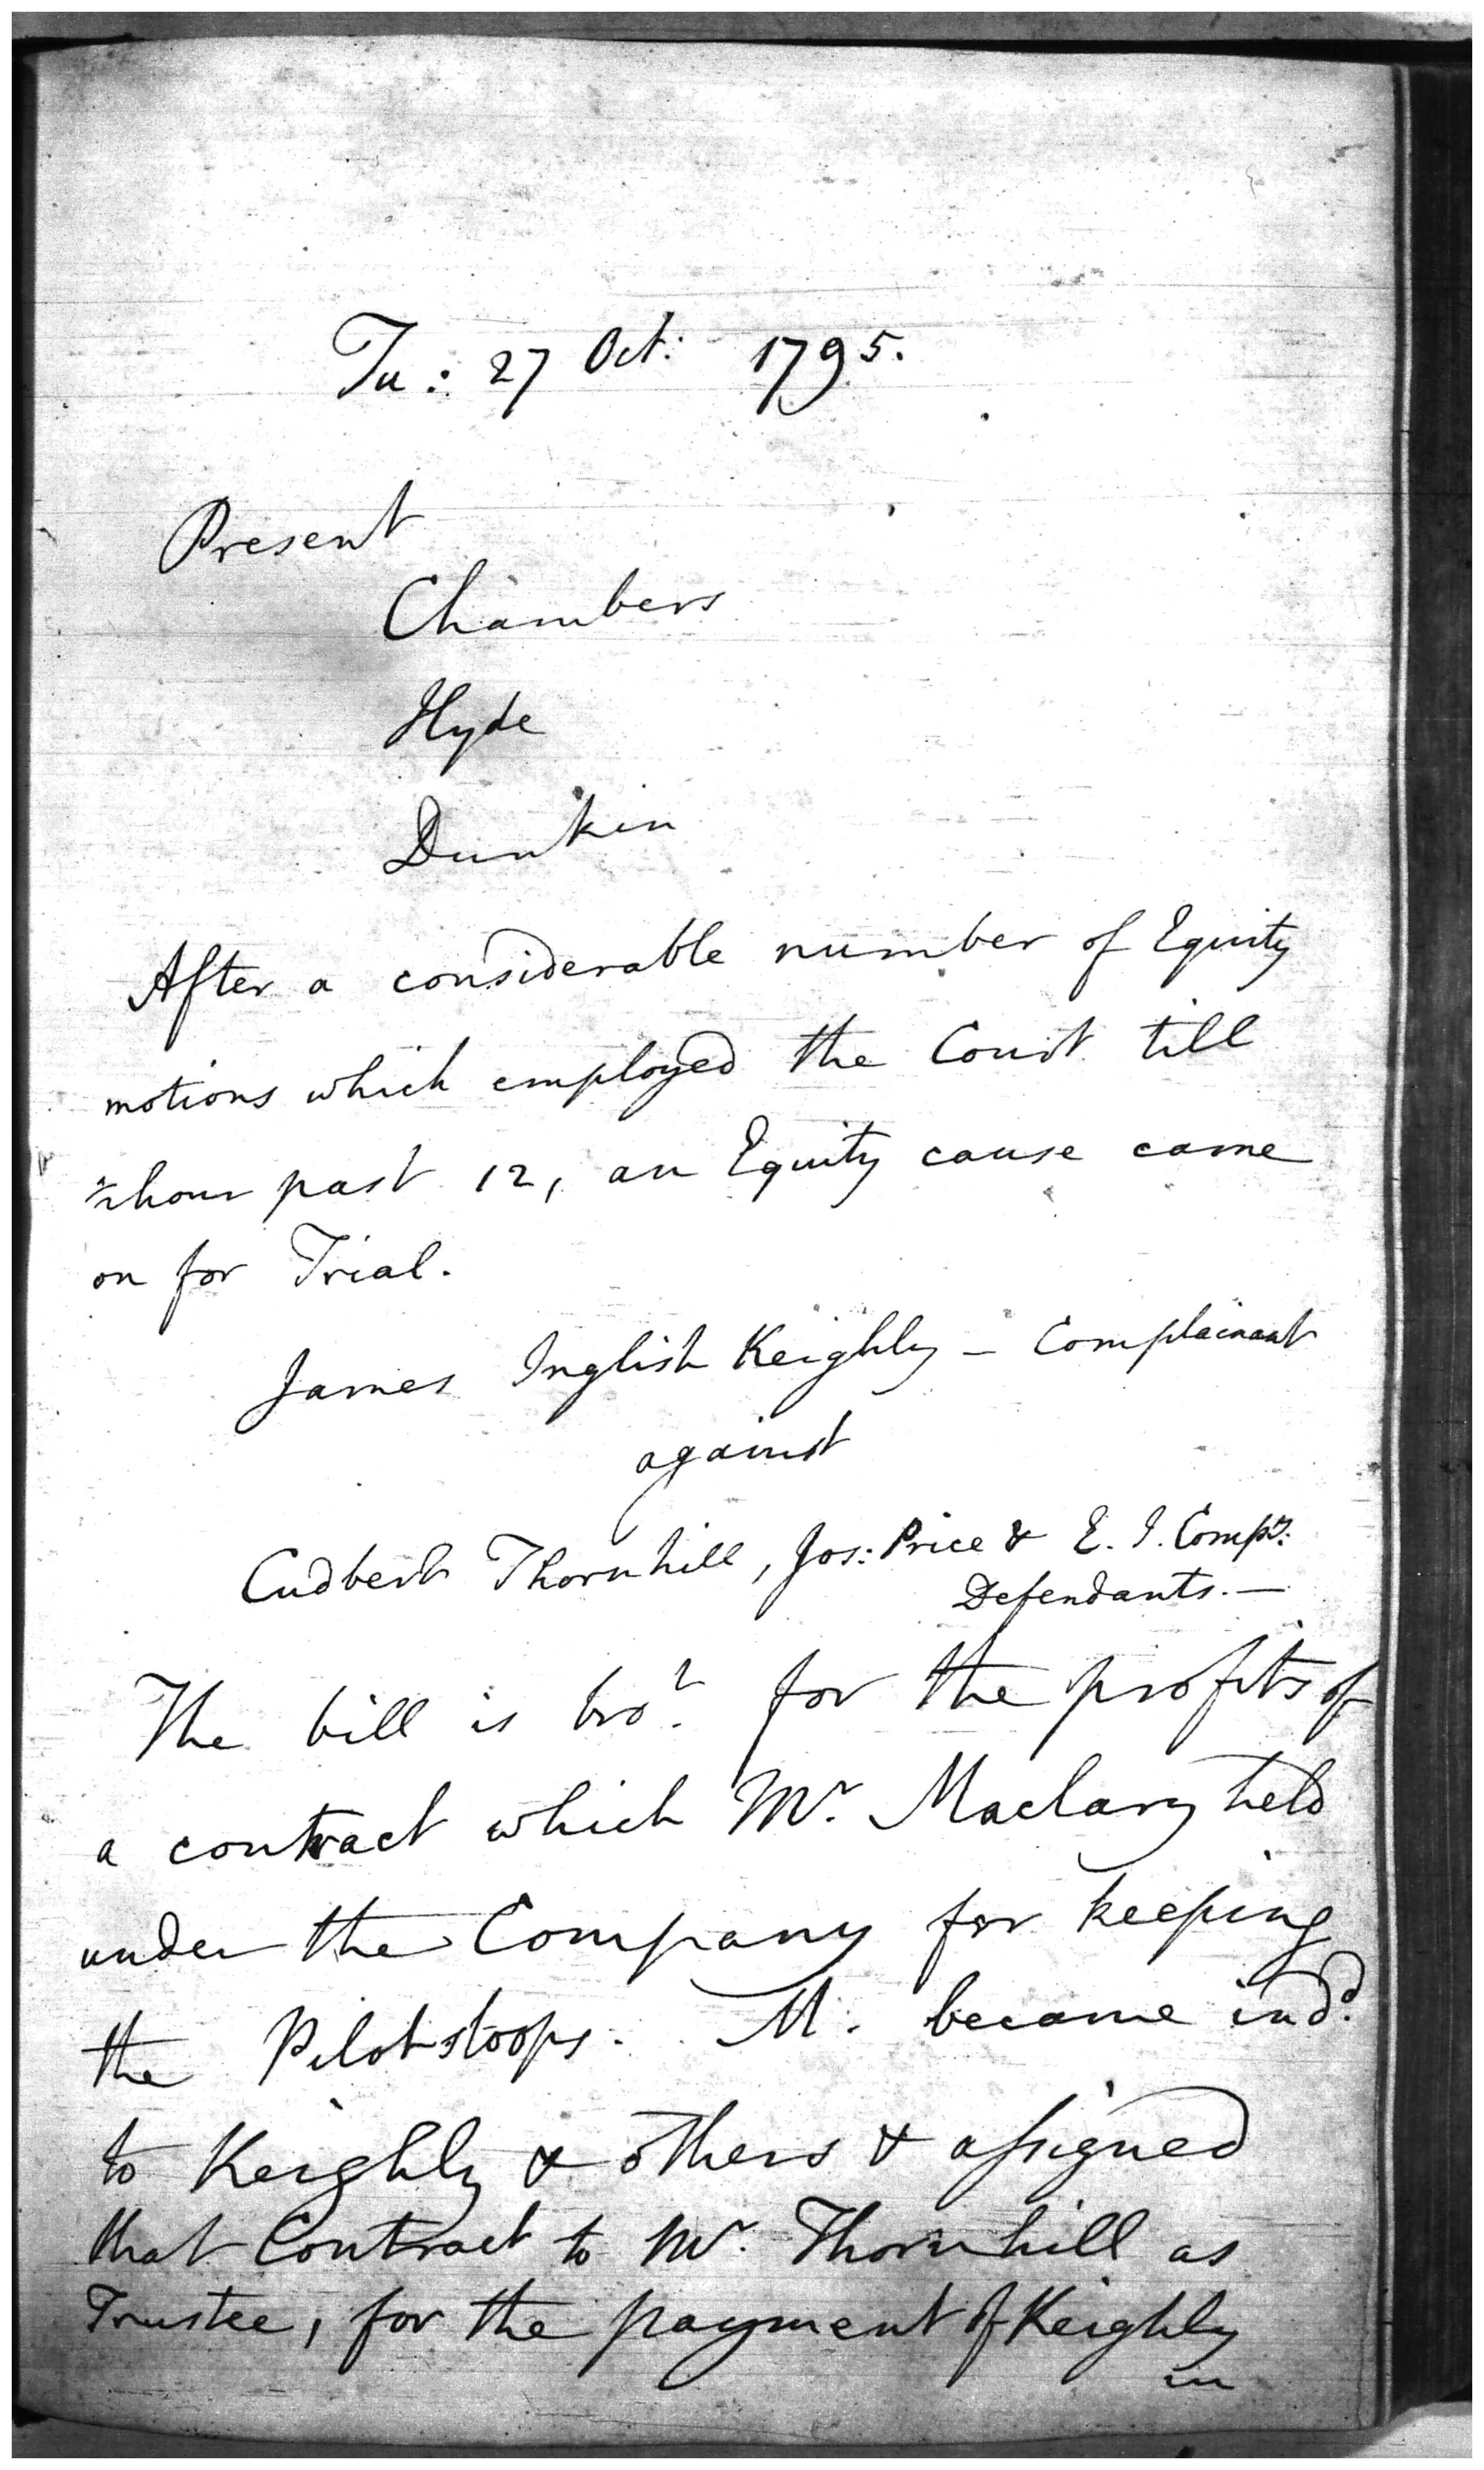 Tu: 27 Oct: 1795.
Present
Chambers
Hyde
Dunkin
After a considerable number of Equity
motions which employed the Court till
½ hour past 12, an Equity cause came
on for Trial.
James Inglish Keighly - Complainant
against
Cudbert Thornhill, Jos: Price & E. I. Compy:
Defendants. —
The bill is bro.t for the profits of
a contract which Mr. Maclary held
under the Company for keeping
the Pilot sloops. M. became ind.d
to Keighly & others & assigned
that Contract to Mr. Thornhill as
Trustee, for the payment of Keighly
in